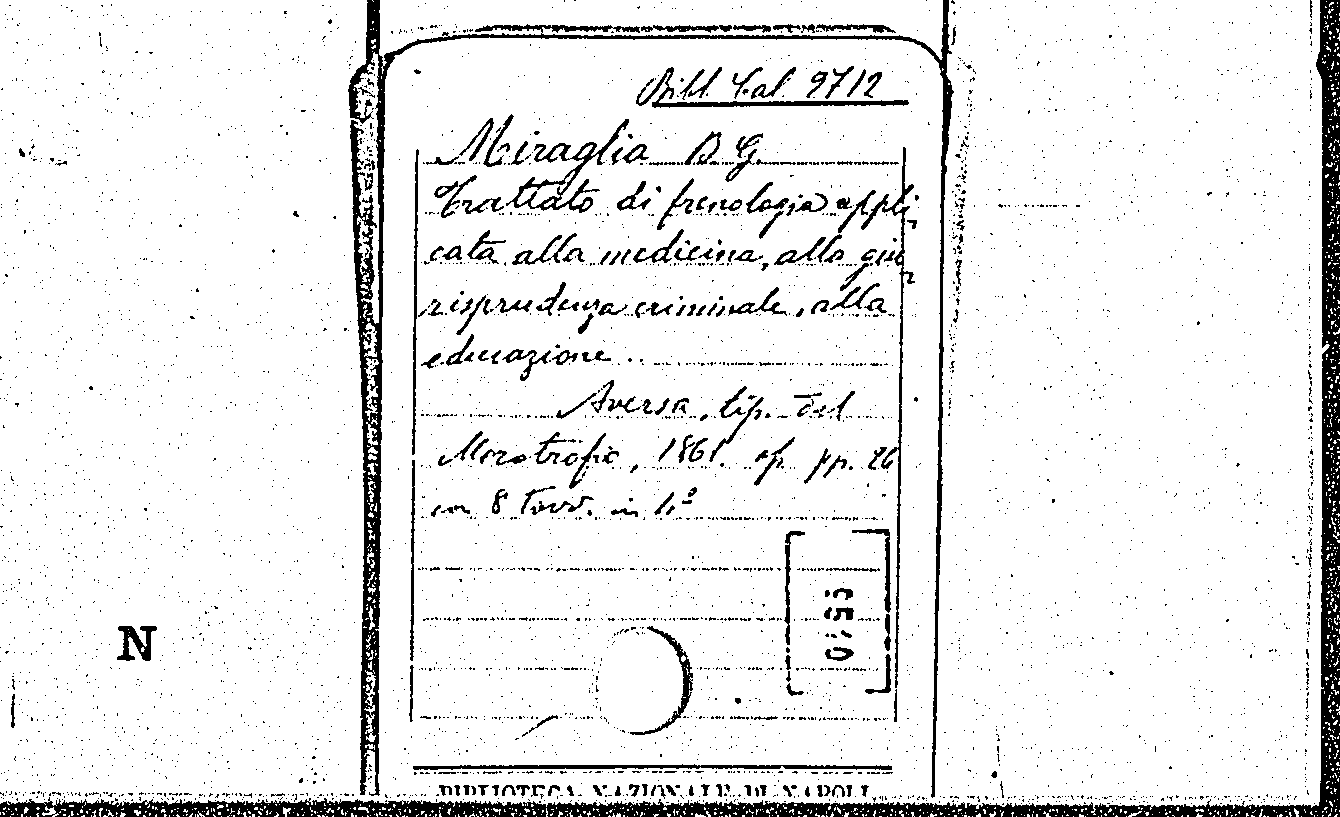 Bibl. Cal 9712
Miraglia B. G.
Trattato di frenologia appli-
cata alla medicina, alla giu-
risprudenza criminale, alla
educazione ..
Aversa, tip. del
Morotrofio, 1861. op. pp. 26
con 8 tavv. in 4º
N
BIBLIOTECA NAZIONALE DI NAPOLI